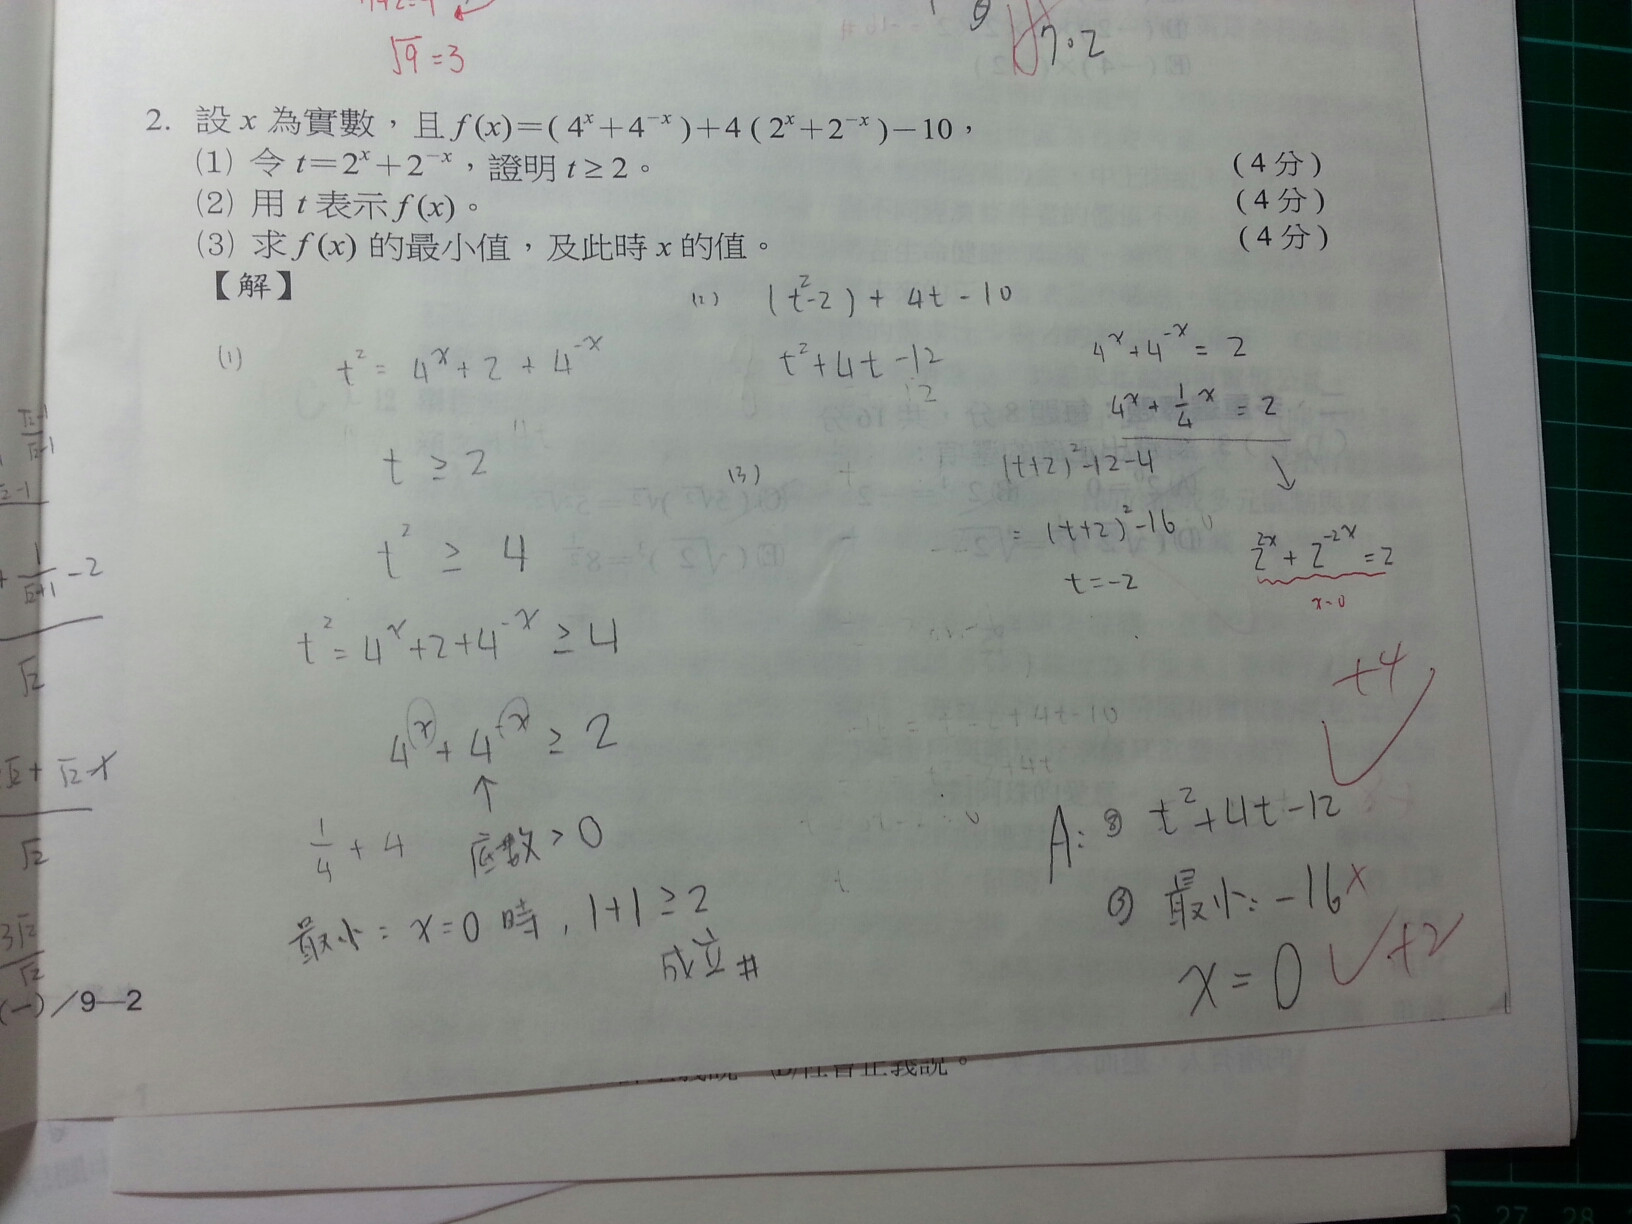 √9=3
7.2
2. 設 x 為實數，且 f(x)=(4ˣ+4⁻ˣ)+4(2ˣ+2⁻ˣ)−10，
(1) 令 t=2ˣ+2⁻ˣ，證明 t≥2。 (4分)
(2) 用 t 表示 f(x)。 (4分)
(3) 求 f(x) 的最小值，及此時 x 的值。 (4分)
【解】
(1)
t²=4ˣ+2+4⁻ˣ
t≥2
t²≥4
t²=4ˣ+2+4⁻ˣ≥4
4ˣ+4⁻ˣ≥2
↑
1/4+4 底數>0
最小：x=0時，1+1≥2
成立#
(2) (t²-2)+4t-10
t²+4t-12
(3) (t+2)²-12-4
=(t+2)²-16
t=-2
4ˣ+4⁻ˣ=2
4ˣ+1/4ˣ=2
↘
2²ˣ+2⁻²ˣ=2
x=0
+4
A: ② t²+4t-12
③ 最小:-16 x
x=0 +2
(一)/9—2